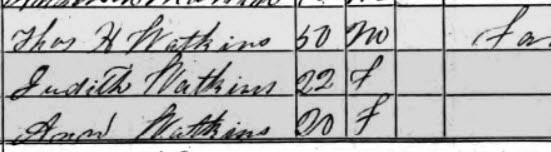 Thos H Watkins 50 M Fa
Judith Watkins 22 F
Ann Watkins 20 F